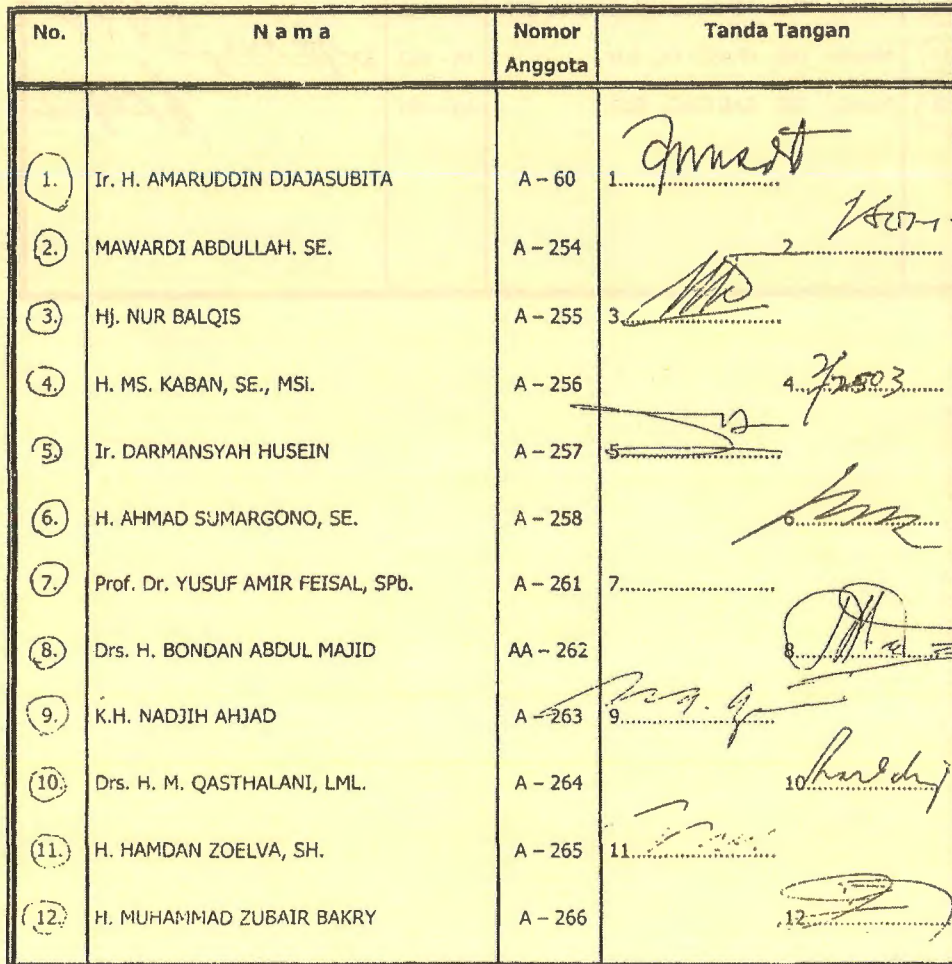 No. Nama Nomor Anggota Tanda Tangan
1. Ir. H. AMARUDDIN DJAJASUBITA A – 60 1
2. MAWARDI ABDULLAH. SE. A – 254 2
3. Hj. NUR BALQIS A – 255 3
4. H. MS. KABAN, SE., MSi. A – 256 4
5. Ir. DARMANSYAH HUSEIN A – 257 5
6. H. AHMAD SUMARGONO, SE. A – 258 6
7. Prof. Dr. YUSUF AMIR FEISAL, SPb. A – 261 7
8. Drs. H. BONDAN ABDUL MAJID AA – 262 8
9. K.H. NADJIH AHJAD A – 263 9
10. Drs. H. M. QASTHALANI, LML. A – 264 10
11. H. HAMDAN ZOELVA, SH. A – 265 11
12. H. MUHAMMAD ZUBAIR BAKRY A – 266 12